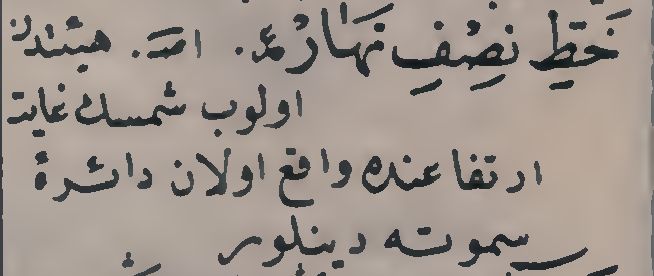 خَطِّ نِصْفِ نَهَارْ ع. اس. هیئتدن
اولوب شمسك غایت
ارتفاعنده واقع اولان دائرهٔ
سموته دینلور